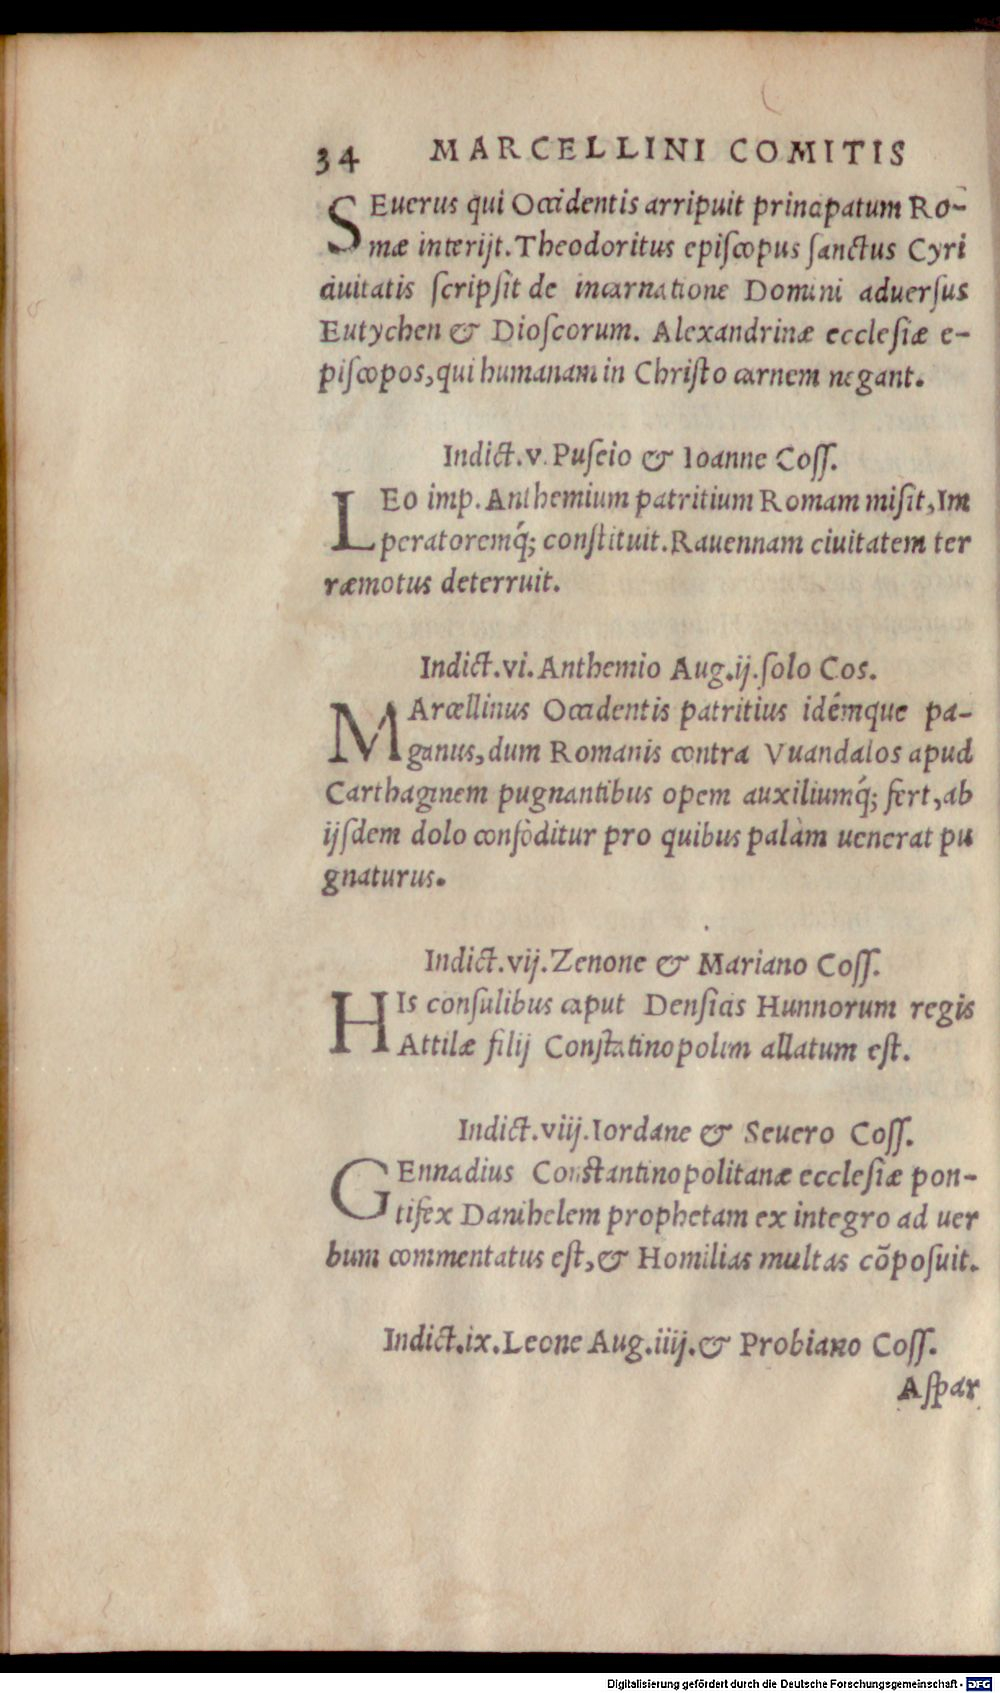 34 MARCELLINI COMITIS
SEuerus qui Occidentis arripuit principatum Ro-
mæ interijt. Theodoritus episcopus sanctus Cyri
ciuitatis scripsit de incarnatione Domini aduersus
Eutychen & Dioscorum. Alexandrinæ ecclesiæ e-
piscopos, qui humanam in Christo carnem negant.
Indict.v. Puseio & Ioanne Coss.
LEo imp. Anthemium patritium Romam misit, Im
peratoremq́; constituit. Rauennam ciuitatem ter
ræmotus deterruit.
Indict.vi. Anthemio Aug.ij. solo Cos.
MArcellinus Occidentis patritius idémque pa-
ganus, dum Romanis contra Vuandalos apud
Carthaginem pugnantibus opem auxiliumq́; fert, ab
ijsdem dolo confòditur pro quibus palàm uenerat pu
gnaturus.
Indict.vij. Zenone & Mariano Coss.
HIs consulibus caput Densicis Hunnorum regis
Attilæ filij Constātinopolim allatum est.
Indict.viij. Iordane & Seuero Coss.
GEnnadius Constantinopolitanæ ecclesiæ pon-
tifex Danihelem prophetam ex integro ad uer
bum commentatus est, & Homilias multas cõposuit.
Indict.ix. Leone Aug.iiij. & Probiano Coss.
Aspar
Digitalisierung gefördert durch die Deutsche Forschungsgemeinschaft - DFG